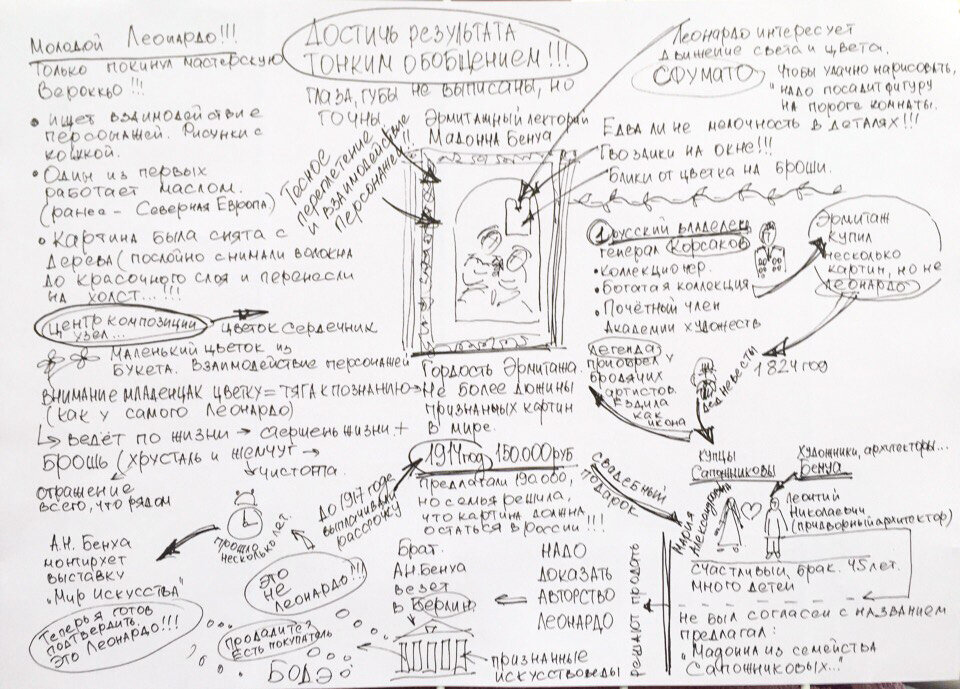 Молодой Леонардо!!!
Только покинул мастерскую
Вероккьо!!!
• ищет взаимодействие
персонажей. Рисунки с
кошкой.
• Один из первых
работает маслом.
(ранее – Северная Европа)
• Картина была снята с
дерева (послойно снимали волокна
до красочного слоя и перенесли
на холст...!!!
Центр композиции
узел...
цветок сердечник
Маленький цветок из
букета. Взаимодействие персонажей
Внимание младенца к цветку = тяга к познанию
(как у самого Леонардо)
ведёт по жизни → стержень жизни +
Брошь (хрусталь и жемчуг →
чистота.
отражение
всего, что рядом
Достичь результата
тонким обобщением!!!
Глаза, губы не выписаны, но
точны
Эрмитажный лекторий
Мадонна Бенуа
Тесное
переплетение
и взаимодействие
персонажей!!
Леонардо интересует
движение света и цвета.
Сфумато
Чтобы удачно нарисовать,
"надо посадить фигуру
на пороге комнаты.
Едва ли не мелочность в деталях!!!
Гвоздики на окне!!!
Блики от цветка на броши.
1 русский владелец
генерал Корсаков
• Коллекционер.
• Богатая коллекция
• Почётный член
Академии художеств
Эрмитаж
купил
несколько
картин, но не
Леонардо
1824 год
Легенда
приобрел у
бродячих
артистов.
Ездила
как
икона
дед невесты
купцы
Сапожниковы
Художники, архитекторы...
Бенуа
Мария
Александровна
Леонтий
Николаевич
(придворный архитектор)
свадебный
подарок
счастливый брак. 45 лет.
много детей
Не был согласен с названием
предлагал:
"Мадонна из семейства
Сапожниковых..."
решают продать
Гордость Эрмитажа.
Не более дюжины
признанных картин
в мире.
1914 год 150.000 руб
предлагали 190.000,
но семья решила,
что картина должна
остаться в России!!!
До 1917 года
выплачивали
рассрочку
Надо
доказать
авторство
Леонардо
Брат.
А.Н. Бенуа
везет
в Берлин
признанные
искусствоведы
Бодэ
Это
не
Леонардо!!!
Продадите?
Есть покупатель
прошло
несколько лет.
А.Н. Бенуа
монтирует
выставку
"Мир искусства"
Теперь я готов
подтвердить.
Это Леонардо!!!